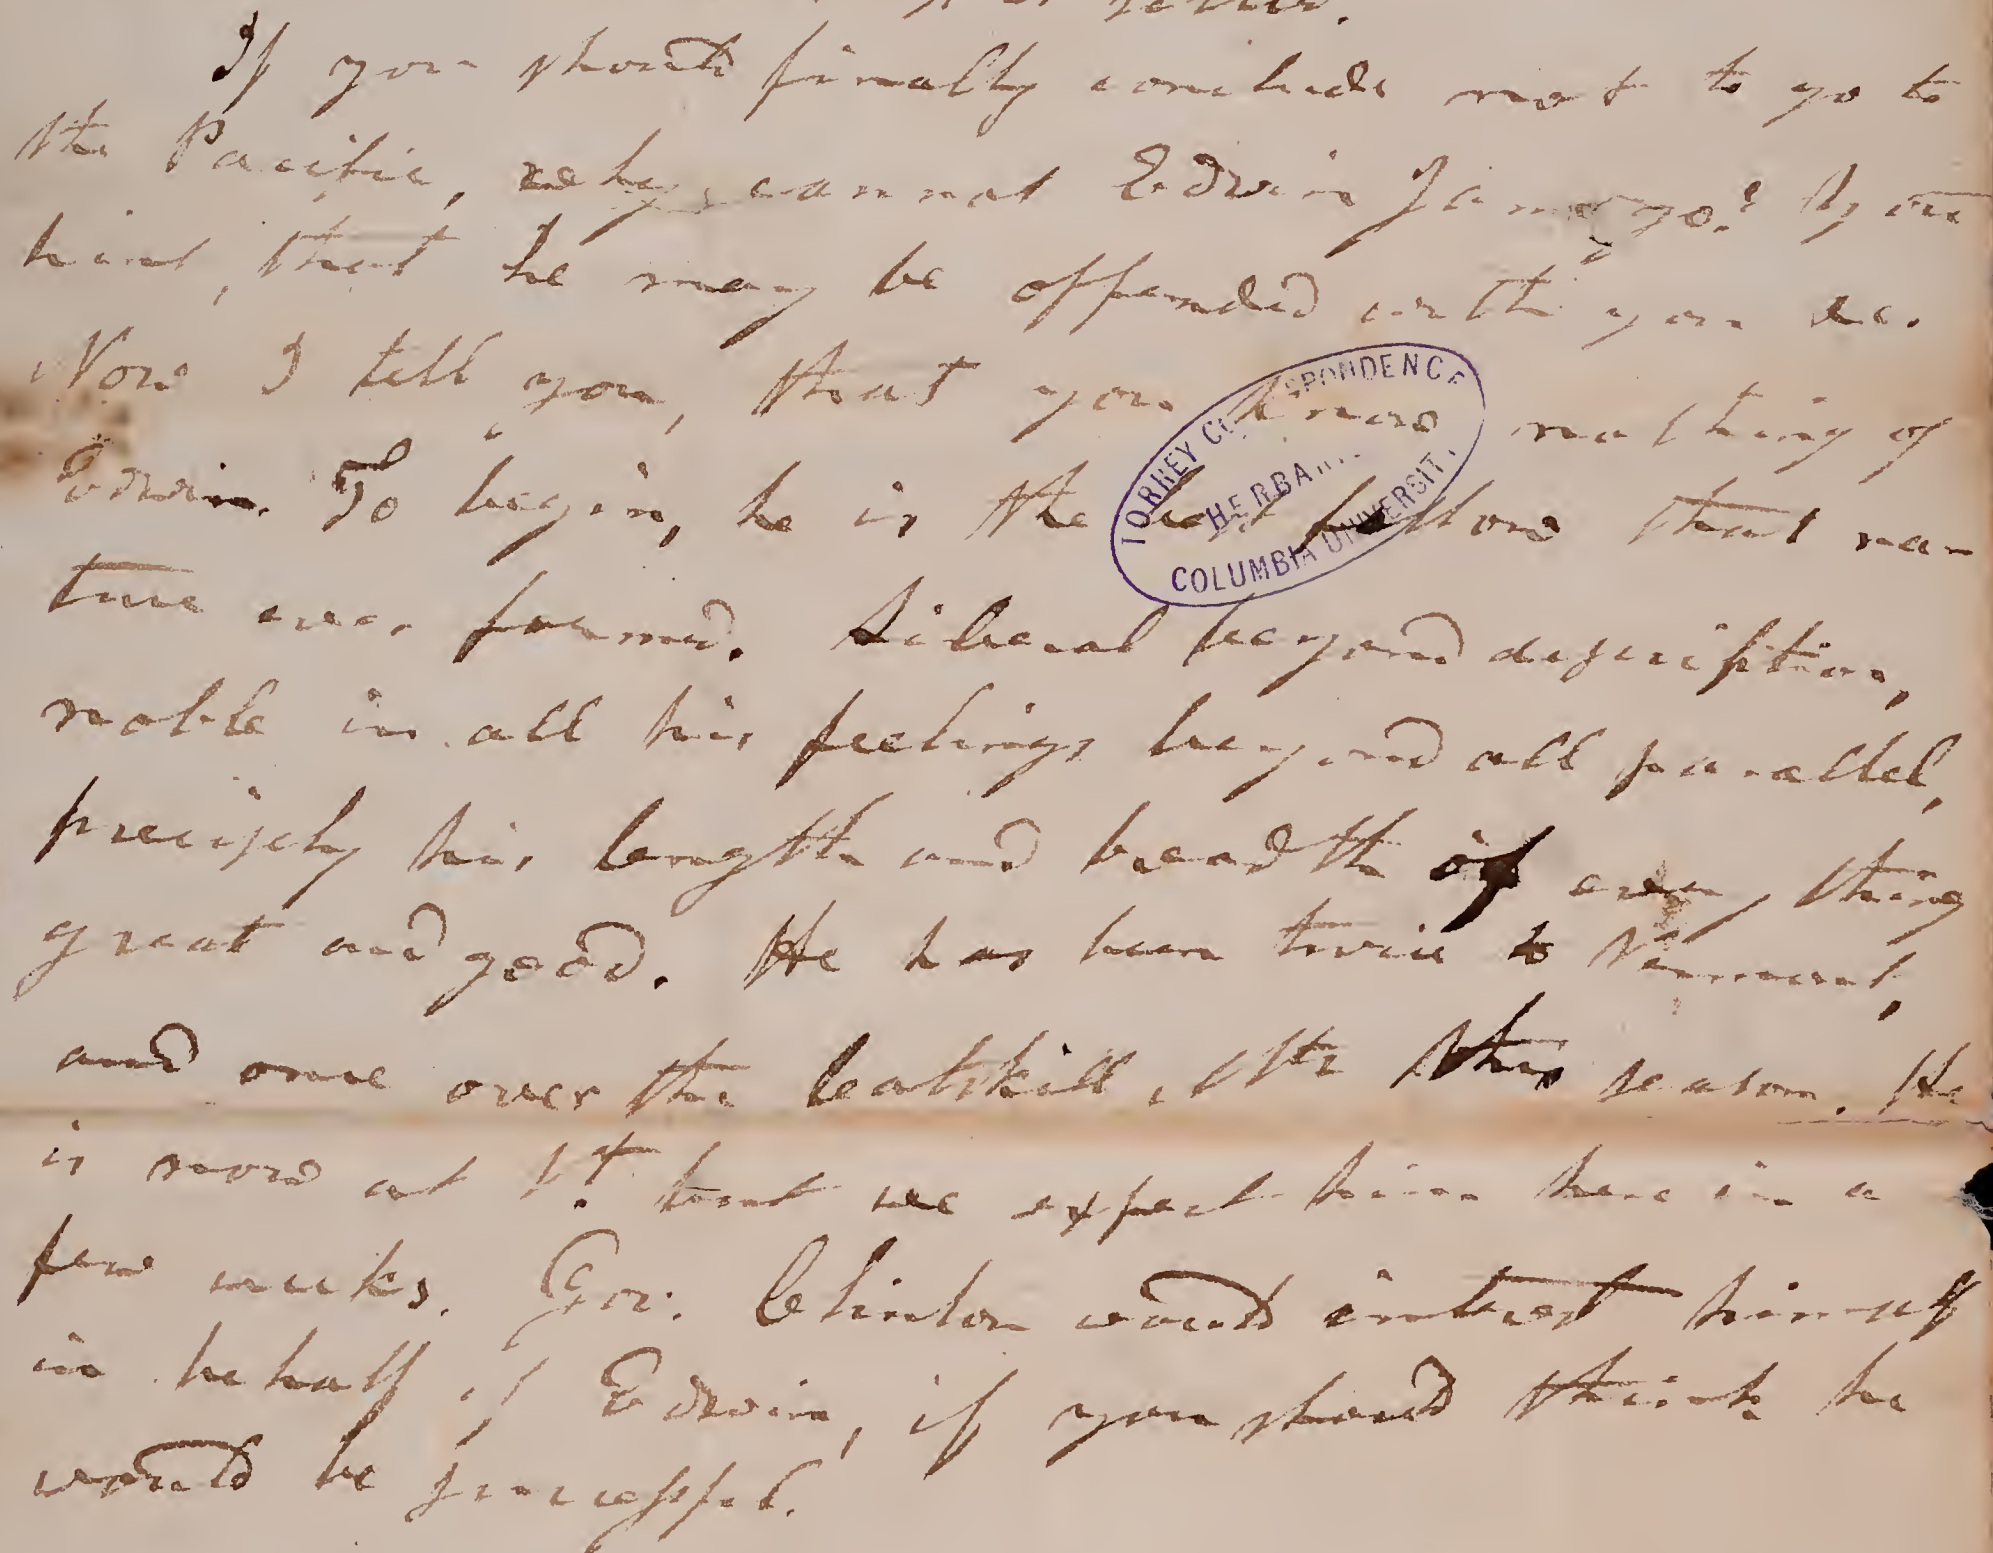 If you should finally conclude not to go to
the Pacific, why cannot Edwin James go? You
hint, that he may be offended with you &c.
Now I tell you, that you know nothing of
Edwin. To begin, he is the best fellow that na-
ture ever formed. Liberal beyond description,
noble in all his feelings beyond all parallel,
precisely his length and breadth of every thing
great and good. He has been twice to Vermont,
and once over the Catskill, Mts this season. He
is now at Vt. but we expect him here in a
few weeks. Gov. Clinton would interest himself
in behalf of Edwin, if you should think he
would be successful.
TORREY CORRESPONDENCE
HERBARIUM
COLUMBIA UNIVERSITY.